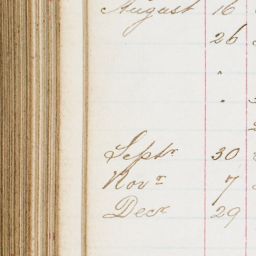 August 16
26
"
"
Septr 30
Novr 7
Decr 29